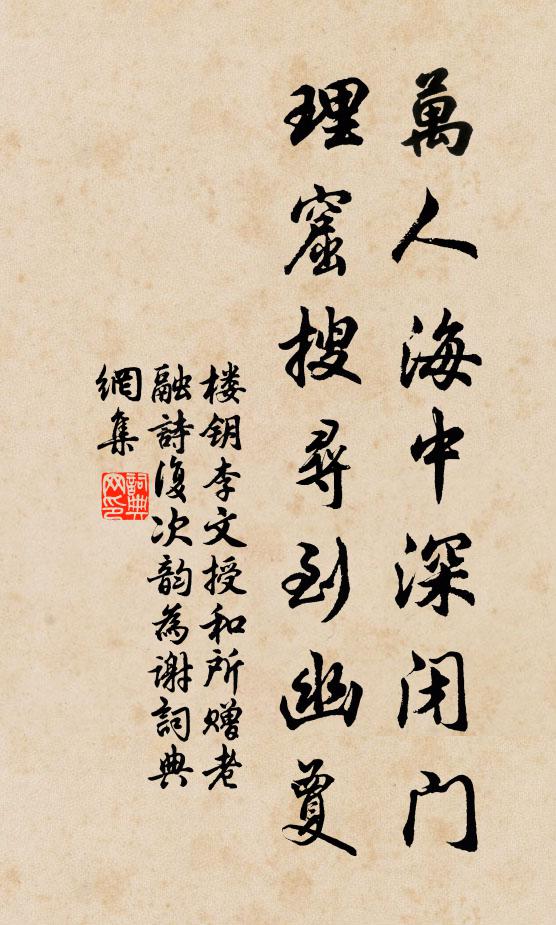 萬人海中深閉門
理窟搜尋到幽夐
楼钥李文授和所赠老
融詩復次韵為谢詞典
網集
詞典
网印